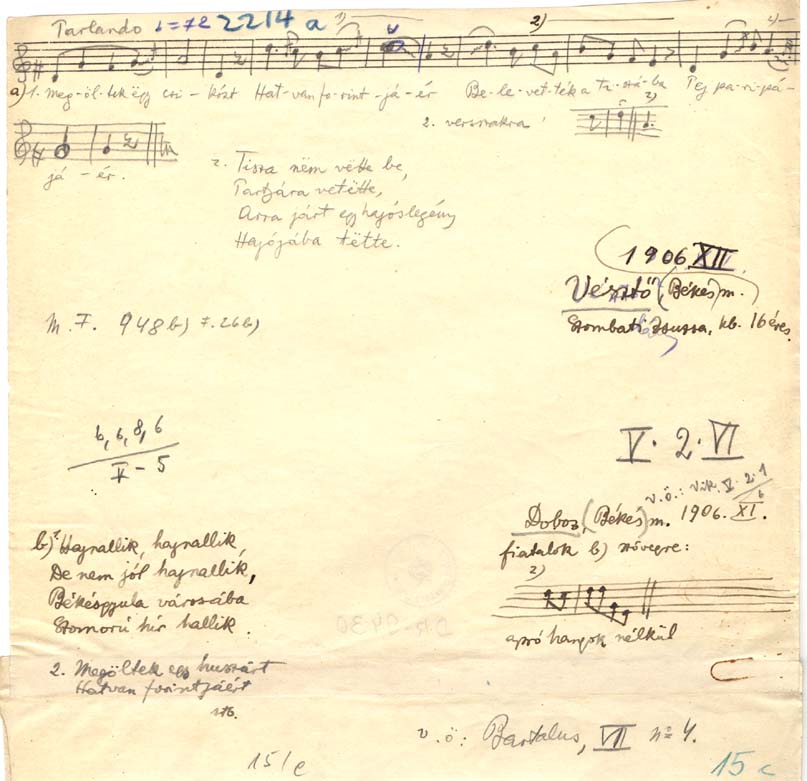 Parlando ♩=72 2214 a 1) 2)
a) 1. Mëg-öl-tek ëgy csi - kóst Hat-van fo-rint-já-ér Be-le-vet-ték a Ti-szá-ba Pej pa-ri-pá-
2. versszakra 2)
já - ér.
2. Tisza nëm vëtte be,
Partjára vetëtte,
Arra járt egy hajóslegény
Hajójába tëtte.
1906 XII
Vésztő (Békés) m.
Szombati Zsuzsa, kb. 16 éves.
M. F. 948 b) F. 26 b)
6, 6, 8, 6
V - 5
V. 2. VI
v.ö.: Vik. V. 2. 1
Doboz, (Békés) m. 1906. XI.
fiatalok b) szövegre:
2)
apró hangok nélkül
b) 1. Hajnallik, hajnallik,
De nem jól hajnallik,
Békésgyula városába
Szomorú hír hallik.
2. Megöltek egy huszárt
Hatvan forintjáért
stb.
v.ö: Bartalus, VII no 4.
15/e
15 c